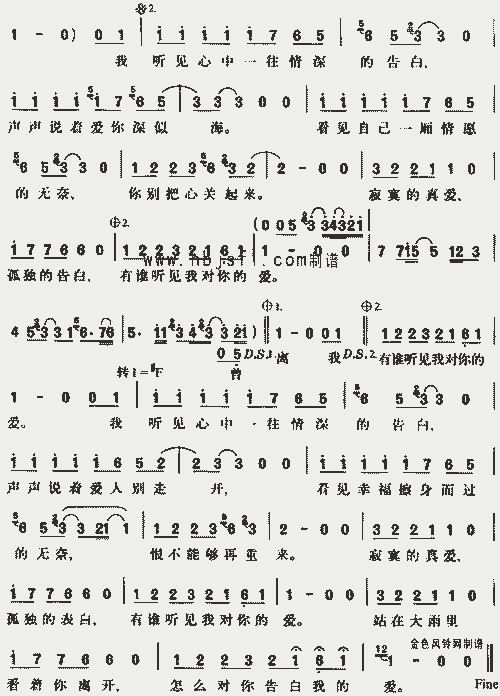 𝄋2.
1 - 0) 0 1 | i i i i i 7 6 5 | 6 5 3 3 0
我 听见心中一往情深 的告白,
i i i i i 7 6 5 | 3 3 3 0 0 | i i i i i 7 6 5
声声说着爱你深似 海。 看见自己一厢情愿
6 5 3 3 0 | 1 2 2 3 6 3 2 | 2 - 0 0 | 3 2 2 1 1 0
的无奈, 你别把心关起来。 寂寞的真爱,
2. (0 0 5 3 3 4 3 2 1
i 7 7 6 6 0 | 1 2 2 3 2 1 6 1 | 1 - 0 0 | 7 7 i 5 5 1 2 3
孤独的告白, 有谁听见我对你的 爱。
www.hbjsfl.com制谱
1. 2.
4 5 3 3 1 6 · 7 6 | 5 · 1 1 3 4 3 3 2 1) | 1 - 0 0 1 | 1 2 2 3 2 1 6 1
0 5 D.S.1. 离 我 D.S.2. 有谁听见我对你的
转1=#F 曾
1 - 0 0 1 | i i i i i 7 6 5 | 6 5 3 3 0
爱。 我 听见心中一往情深 的 告白,
i i i i i 6 5 2 | 2 3 3 0 0 | i i i i i 7 6 5
声声说着爱人别走 开, 看见幸福擦身而过
6 5 3 3 2 1 1 | 1 2 2 3 6 3 | 2 - 0 0 | 3 2 2 1 1 0
的无奈, 恨不能够再重 来。 寂寞的真爱,
i 7 7 6 6 0 | 1 2 2 3 2 1 6 1 | 1 - 0 0 | 3 2 2 1 1 0
孤独的表白, 有谁听见我对你的 爱。 站在大雨里
金色风铃网制谱
i 7 7 6 6 0 | 1 2 2 3 2 1 6 1 | 1 - 0 0
看着你离开, 怎么对你告白我的 爱。 Fine